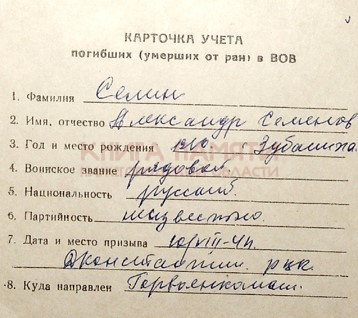 КАРТОЧКА УЧЕТА
погибших (умерших от ран) в ВОВ
1. Фамилия Селин
2. Имя, отчество Александр Семенов
3. Год и место рождения
КНИГА ПАМЯТИ
4. Воинское звание рядовой
ОБЛАСТИ
5. Национальность русский.
6. Партийность неизвестно.
7. Дата и место призыва
РВК.
8. Куда направлен Горвоенкомат.